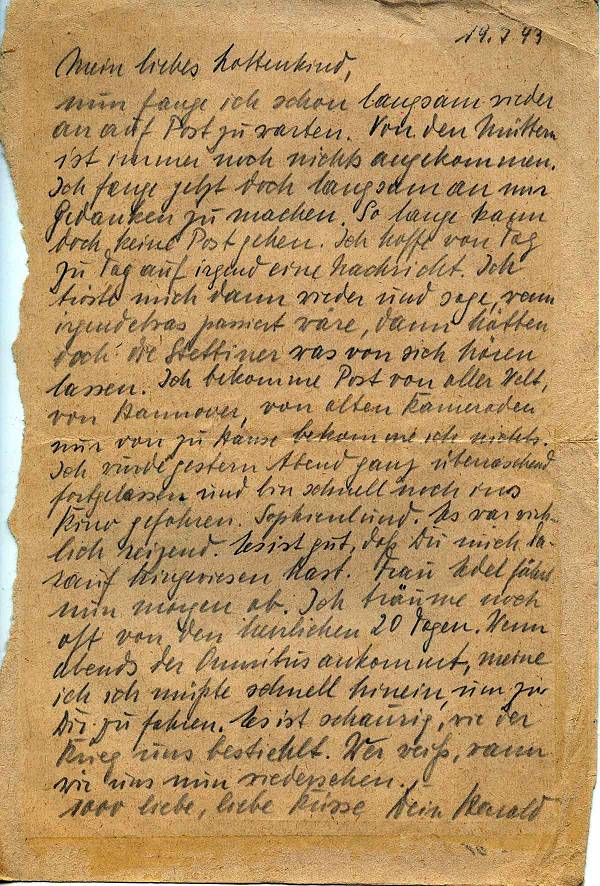 19.3.43
Mein liebes Lottenkind,
nun fange ich schon langsam wieder
an auf Post zu warten. Von den Müttern
ist immer noch nichts angekommen.
Ich fange jetzt doch langsam an mir
Gedanken zu machen. So lange kann
doch keine Post gehen. Ich hoffe von Tag
zu Tag auf irgend eine Nachricht. Ich
tröste mich dann wieder und sage, wenn
irgendetwas passiert wäre, dann hätten
doch die Stettiner was von sich hören
lassen. Ich bekomme Post von aller Welt,
von Hannover, von alten Kameraden
nur von zu Hause bekomme ich nichts.
Ich wurde gestern Abend ganz überraschend
fortgelassen und bin schnell noch ins
Kino gefahren. Sophienlund. Es war wirk-
lich reizend. Es ist gut, daß Du mich da-
rauf hingewiesen hast. Frau Edel fährt
nun morgen ab. Ich träume noch
oft von den herrlichen 20 Tagen. Wenn
abends der Omnibus ankommt, meine
ich ich müßte schnell hinein, um zu
Dir zu fahren. Es ist schaurig, wie der
Krieg uns bestiehlt. Wer weiß, wann
wir uns nun wiedersehen.
1000 liebe, liebe Küsse Dein Harald